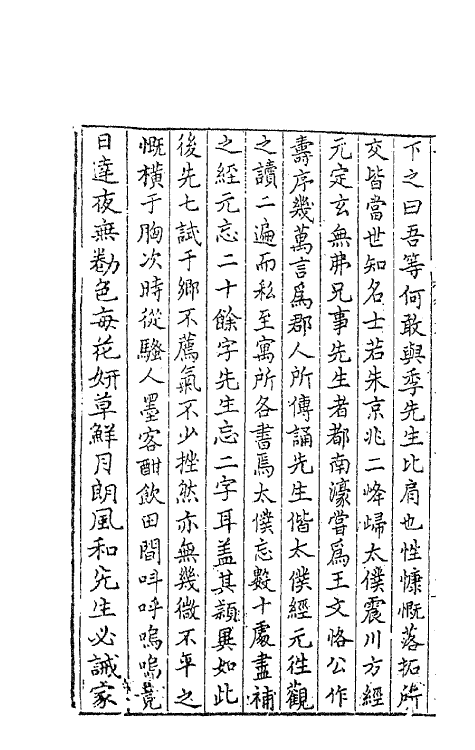 下之曰吾等何敢與季先生比肩也性慷慨落拓所
交皆當世知名士若朱京兆二峰歸太僕震川方經
元定玄無弗兄事先生者都南濠嘗爲王文恪公作
壽序幾萬言爲郡人所傳誦先生偕太僕經元徃觀
之讀二遍而私至寓所各書焉太僕忘數十處盡補
之經元忘二十餘字先生忘二字耳盖其頴異如此
後先七試于鄉不薦氣不少挫然亦無幾微不平之
慨橫于胸次時從騷人墨客酣飲田間呌呼嗚嗚竟
日達夜無勌色每花妍草鮮月朗風和先生必誡家